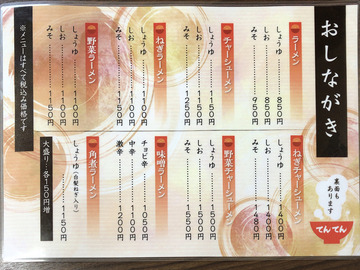 おしながき
ラーメン
しょうゆ……850円
しお……850円
みそ……950円
チャーシューメン
しょうゆ……1150円
しお……1150円
みそ……1250円
ねぎラーメン
しょうゆ……1100円
しお……1100円
みそ……1150円
野菜ラーメン
しょうゆ……1100円
しお……1100円
みそ……1150円
※メニューはすべて税込み価格です
裏面も
あります
てんてん
ねぎチャーシューメン
しょうゆ……1400円
しお……1400円
みそ……1480円
野菜チャーシューメン
しょうゆ……1500円
しお……1500円
みそ……1500円
味噌ラーメン
チョピ辛……1050円
中辛……1100円
激辛……1200円
角煮ラーメン
しょうゆ(白髪ねぎ入り)
……1150円
大盛り…各150円増